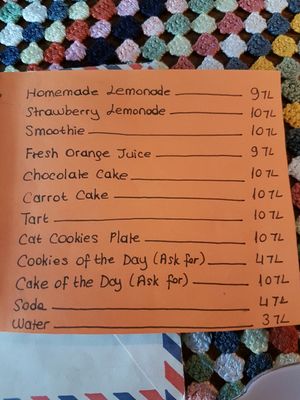 Homemade Lemonade 9 TL
Strawberry Lemonade 10 TL
Smoothie 10 TL
Fresh Orange Juice 9 TL
Chocolate Cake 10 TL
Carrot Cake 10 TL
Tart 10 TL
Cat Cookies Plate 10 TL
Cookies of the Day (Ask for) 4 TL
Cake of the Day (Ask for) 10 TL
Soda 4 TL
Water 3 TL